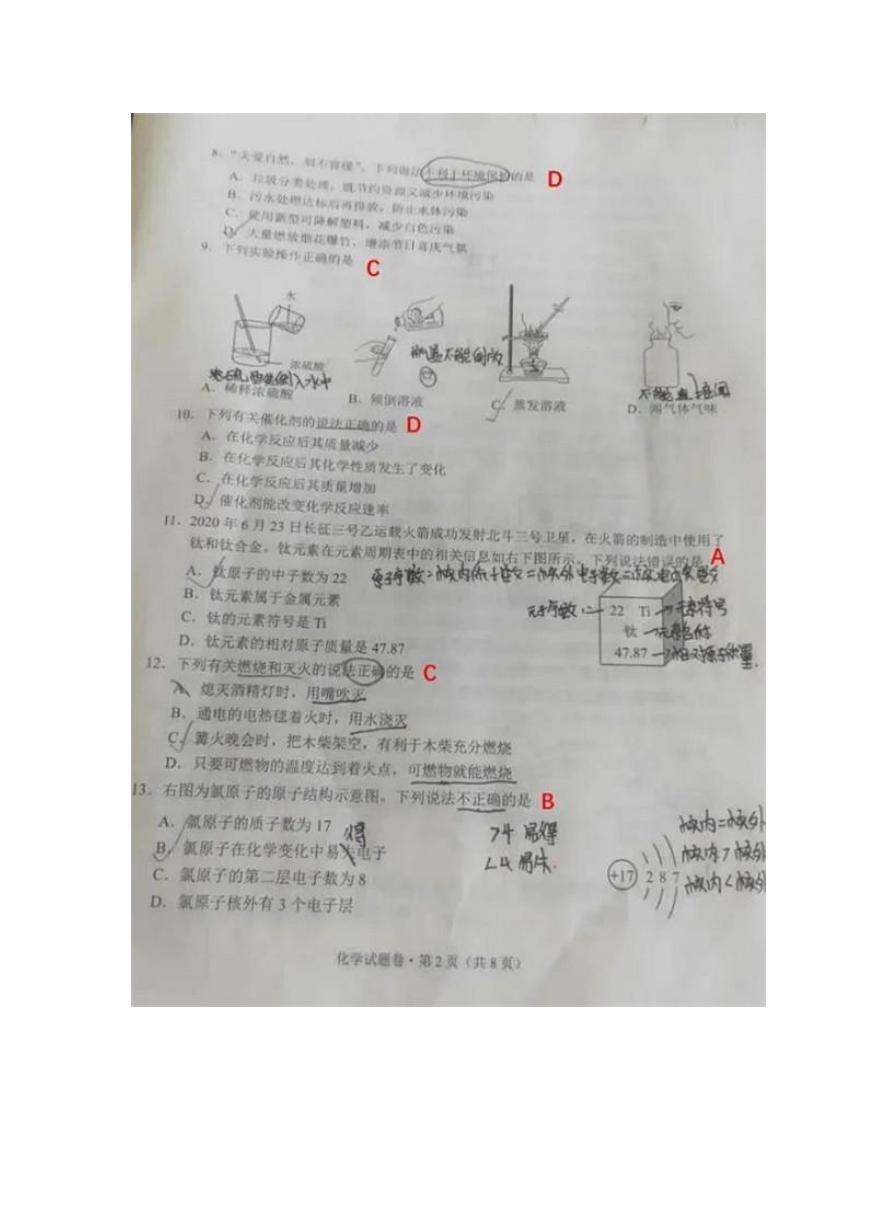 8．“关爱自然，刻不容缓”。下列做法不利于环境保护的是 D
A．垃圾分类处理，既节约资源又减少环境污染
B．污水处理达标后再排放，防止水体污染
C．使用新型可降解塑料，减少白色污染
D．大量燃放烟花爆竹，增添节日喜庆气氛
9．下列实验操作正确的是 C
水
浓硫酸
瓶盖不能倒放
A．稀释浓硫酸
B．倾倒溶液
C．蒸发溶液
D．闻气体气味
10．下列有关催化剂的说法正确的是 D
A．在化学反应后其质量减少
B．在化学反应后其化学性质发生了变化
C．在化学反应后其质量增加
D．催化剂能改变化学反应速率
11．2020 年 6 月 23 日长征三号乙运载火箭成功发射北斗三号卫星，在火箭的制造中使用了
钛和钛合金。钛元素在元素周期表中的相关信息如右下图所示，下列说法错误的是 A
A．钛原子的中子数为 22
原子序数=核内质子数=核外电子数=核电荷数
B．钛元素属于金属元素
C．钛的元素符号是 Ti
D．钛元素的相对原子质量是 47.87
原子序数 22 Ti 元素符号
钛 元素名称
47.87 相对原子质量.
12．下列有关燃烧和灭火的说法正确的是 C
A．熄灭酒精灯时，用嘴吹灭
B．通电的电热毯着火时，用水浇灭
C．篝火晚会时，把木柴架空，有利于木柴充分燃烧
D．只要可燃物的温度达到着火点，可燃物就能燃烧
13．右图为氯原子的原子结构示意图。下列说法不正确的是 B
A．氯原子的质子数为 17
得
B．氯原子在化学变化中易失电子
C．氯原子的第二层电子数为 8
D．氯原子核外有 3 个电子层
>4 易得
<4 易失.
核内=核外
核内>核外
核内<核外
+17 2 8 7
化学试题卷·第 2 页（共 8 页）